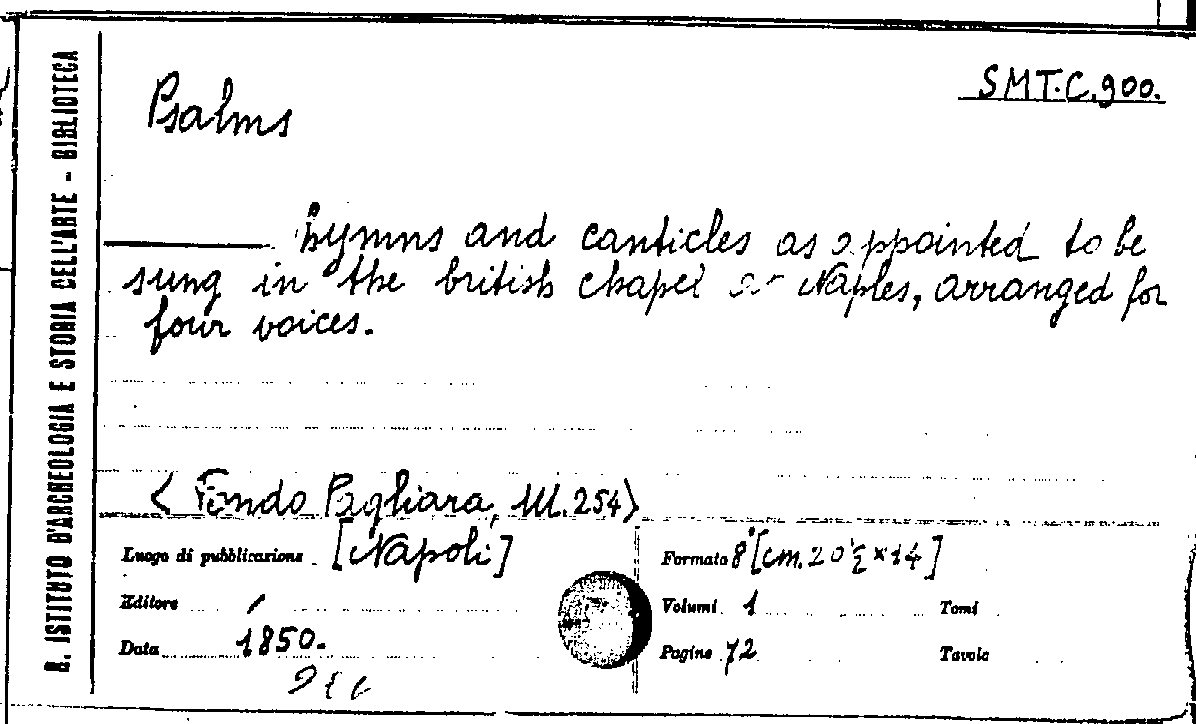 R. ISTITUTO D'ARCHEOLOGIA E STORIA DELL'ARTE - BIBLIOTECA
SMT.C.900.
Psalms
hymns and canticles as appointed to be
sung in the british chapel at Naples, arranged for
four voices.
< Fondo Pagliara, M.254>
Luogo di pubblicazione [Napoli]
Formato 8° [cm. 20½ x 14]
Editore /
Volumi 1
Tomi
Data 1850.
Pagine 72
Tavole